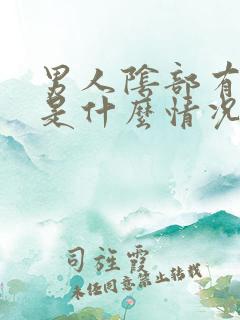 男人陰部有
是什麼情況
司旌霞
未經同意禁止轉載